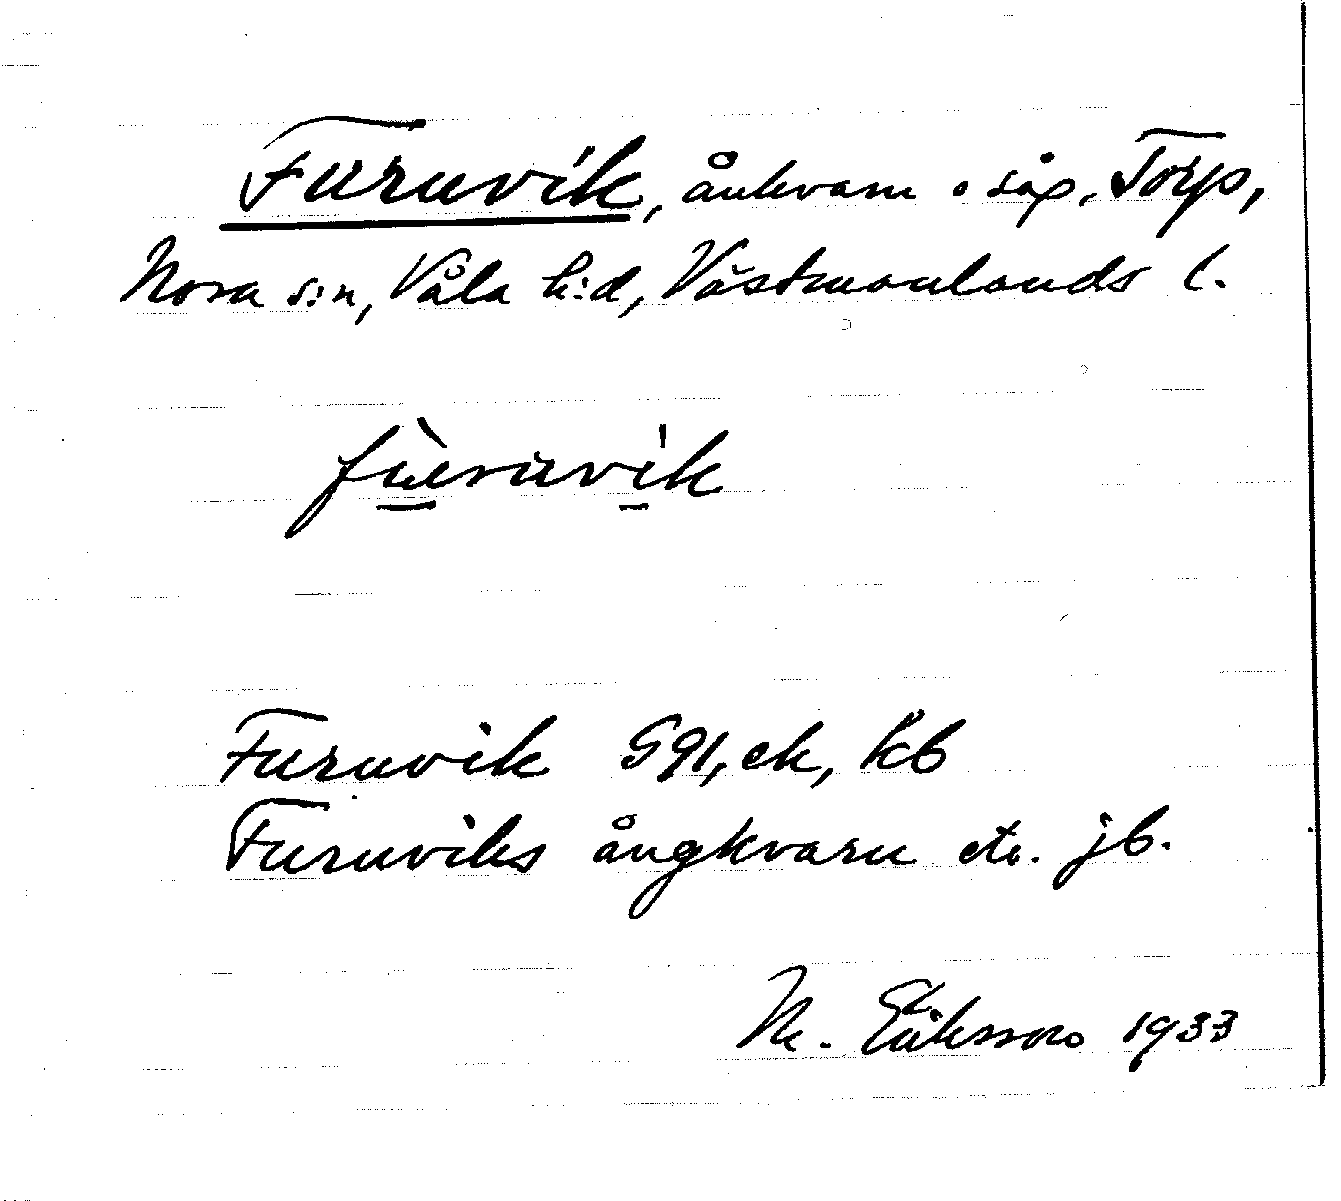 Furuvik, ånkvarn o såg, Torp,
Nora s:n, Våla h:d, Västmanlands l.
fùruvìk
Furuvik G91, ek, kb
Furuviks ångkvarn etc. jb.
M. Eriksson 1933